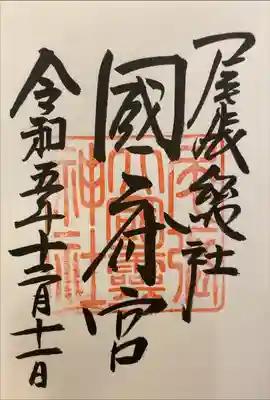 尾張総社
國府宮
令和五年十二月十一日